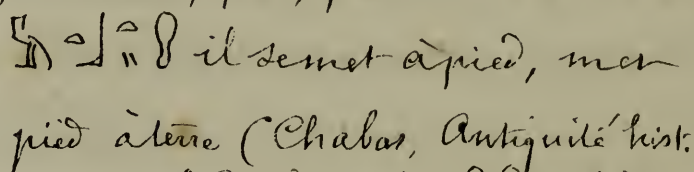 il se met à pied, met
pied à terre (Chabas, Antiquité hist.